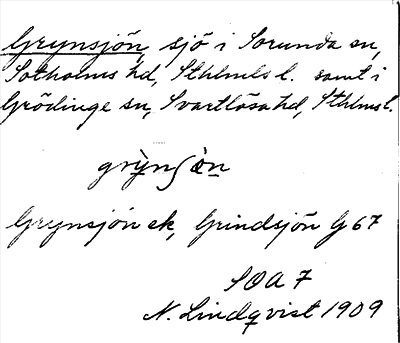 Grynsjön, sjö i Sorunda sn,
Sotholms hd, Sthlms l. samt i
Grödinge sn, Svartlösa hd, Sthlms l.
grỳnʃö̀n
Grynsjön ek, Grindsjön G 67
SOA 7
N. Lindqvist 1909